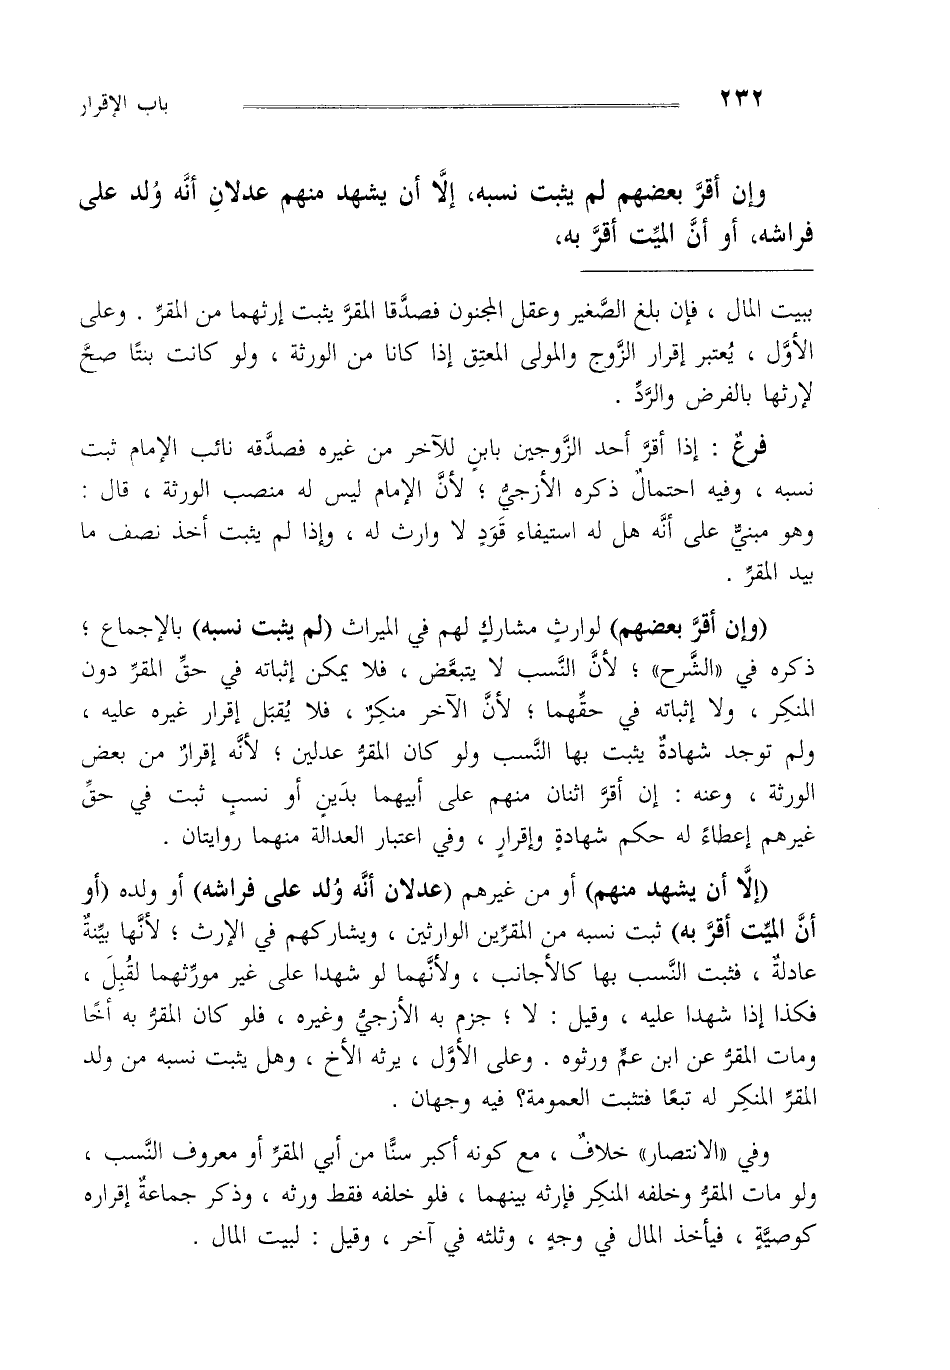 باب الإقرار ٢٣٢
وإن أقرَّ بعضهم لم يثبت نسبه، إلَّا أن يشهد منهم عدلانِ أنَّه وُلد على
فراشه، أو أنَّ الميِّت أقرَّ به،
ببيت المال ، فإن بلغ الصَّغير وعقل المجنون فصدَّقا المقرَّ يثبت إرثهما من المقرِّ . وعلى
الأوَّل ، يُعتبر إقرار الزَّوج والمولى المعتِق إذا كانا من الورثة ، ولو كانت بنتًا صحَّ
لإرثها بالفرض والرَّدِّ .
فرعٌ : إذا أقرَّ أحد الزَّوجين بابنٍ للآخر من غيره فصدَّقه نائب الإمام ثبت
نسبه ، وفيه احتمالٌ ذكره الأزجيُّ ؛ لأنَّ الإمام ليس له منصب الورثة ، قال :
وهو مبنيٌّ على أنَّه هل له استيفاء قَوَدٍ لا وارث له ، وإذا لم يثبت أخذ نصف ما
بيد المقرِّ .
(وإن أقرَّ بعضهم) لوارثٍ مشاركٍ لهم في الميراث (لم يثبت نسبه) بالإجماع ؛
ذكره في «الشَّرح» ؛ لأنَّ النَّسب لا يتبعَّض ، فلا يمكن إثباته في حقِّ المقرِّ دون
المنكِر ، ولا إثباته في حقِّهما ؛ لأنَّ الآخر منكِرٌ ، فلا يُقبَل إقرار غيره عليه ،
ولم توجد شهادةٌ يثبت بها النَّسب ولو كان المقرُّ عدلين ؛ لأنَّه إقرارٌ من بعض
الورثة ، وعنه : إن أقرَّ اثنان منهم على أبيهما بدَينٍ أو نسبٍ ثبت في حقِّ
غيرهم إعطاءً له حكم شهادةٍ وإقرارٍ ، وفي اعتبار العدالة منهما روايتان .
(إلَّا أن يشهد منهم) أو من غيرهم (عدلان أنَّه وُلد على فراشه) أو ولده (أو
أنَّ الميِّت أقرَّ به) ثبت نسبه من المقرِّين الوارثين ، ويشاركهم في الإرث ؛ لأنَّها بيِّنةٌ
عادلةٌ ، فثبت النَّسب بها كالأجانب ، ولأنَّهما لو شهدا على غير مورِّثهما لقُبِلَ ،
فكذا إذا شهدا عليه ، وقيل : لا ؛ جزم به الأزجيُّ وغيره ، فلو كان المقرُّ به أخًا
ومات المقرُّ عن ابن عمٍّ ورثوه . وعلى الأوَّل ، يرثه الأخ ، وهل يثبت نسبه من ولد
المقرِّ المنكِر له تبعًا فتثبت العمومة؟ فيه وجهان .
وفي «الانتصار» خلافٌ ، مع كونه أكبر سنًّا من أبي المقرِّ أو معروف النَّسب ،
ولو مات المقرُّ وخلفه المنكِر فإرثه بينهما ، فلو خلفه فقط ورثه ، وذكر جماعةٌ إقراره
كوصيَّةٍ ، فيأخذ المال في وجهٍ ، وثلثه في آخر ، وقيل : لبيت المال .